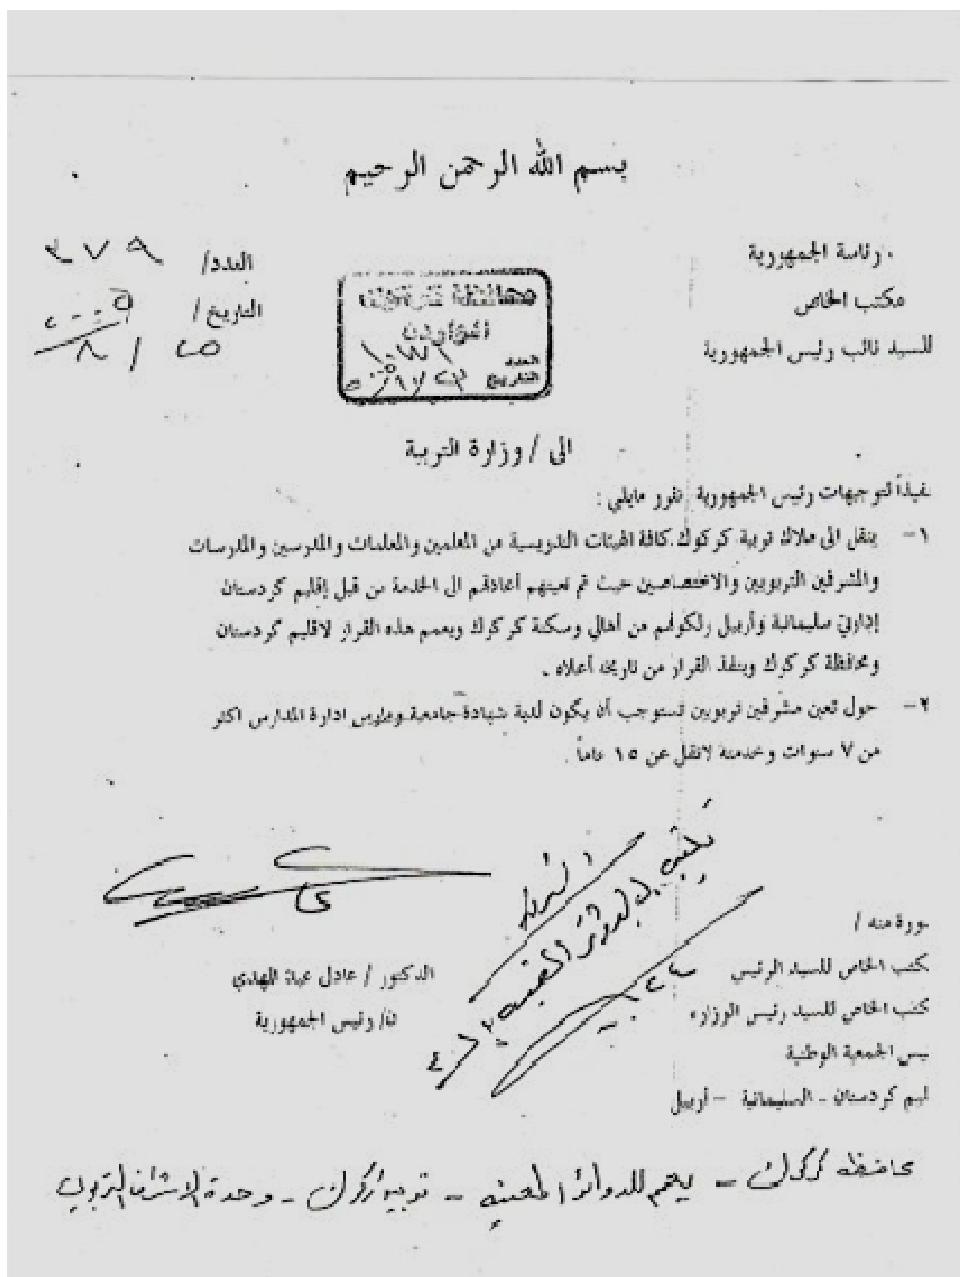 بسم الله الرحمن الرحيم
رئاسة الجمهورية
مكتب الخاص
للسيد نائب رئيس الجمهورية
العدد/ ٣٧٩
التاريخ/ ٢٠٠٥
٨/٢٥
محافظة
الواردة
العدد
التاريخ
الى / وزارة التربية
تنفيذاً لتوجيهات رئيس الجمهورية نقرر مايلي :
١- ينقل الى ملاك تربية كركوك كافة الهيئات التدريسية من المعلمين والمعلمات والمدرسين والمدرسات
والمشرفين التربويين والاختصاصين حيث تم تعينهم أعادتهم الى الخدمة من قبل إقليم كردستان
إدارتي سليمانية وأربيل ولكونهم من أهالي وسكنة كركوك ويعمم هذه القرار لاقليم كردستان
ومحافظة كركوك وينفذ القرار من تاريخه أعلاه .
٢- حول تعين مشرفين تربويين تستوجب أن يكون لدية شهادة جامعية ومارس ادارة المدارس اكثر
من ٧ سنوات وخدمته لاتقل عن ١٥ عاماً .
الدكتور / عادل عبد المهدي
ن/ رئيس الجمهورية
صورة منه /
مكتب الخاص للسيد الرئيس
مكتب الخاص للسيد رئيس الوزراء
رئيس الجمعية الوطنية
إقليم كردستان - السليمانية - أربيل
محافظة كركوك - يعمم للدوائر المعنية - تربية كركوك - وحدة الاشراف التربوي